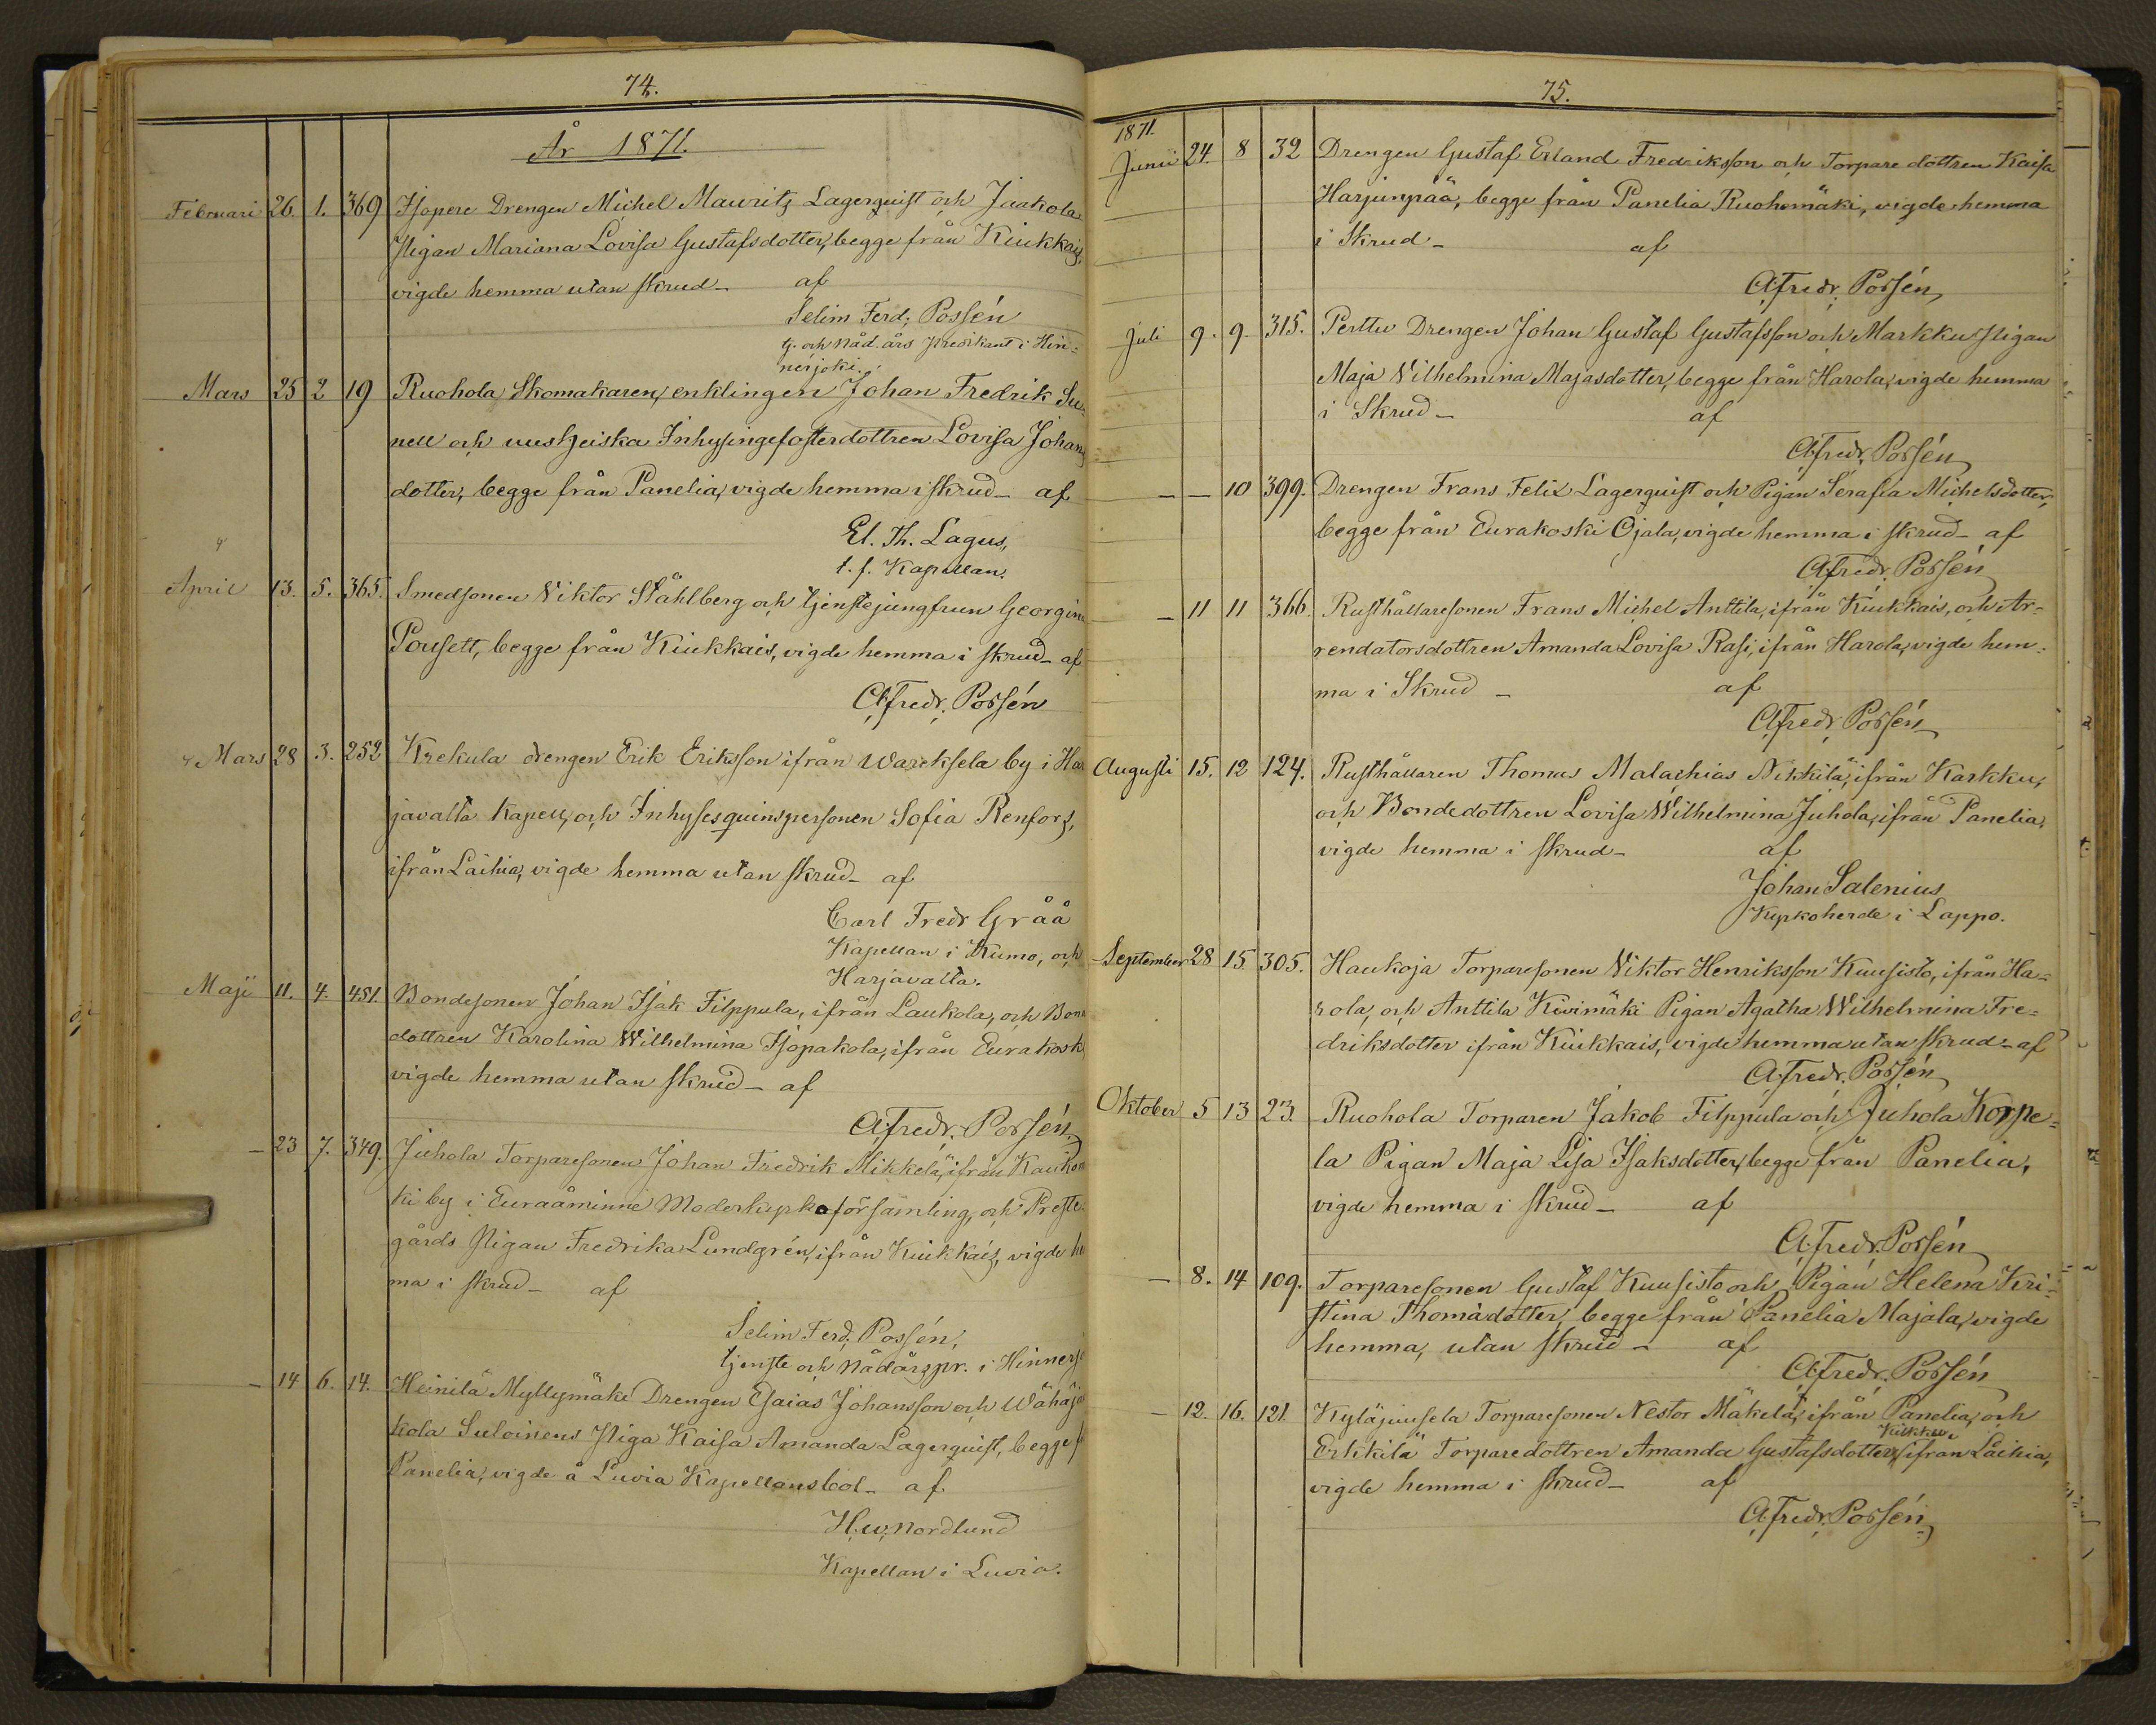 74.
År 1871.
Februari 26. 1. 369 Isopere Drengen Michel Mauritz Lagerquist och Jaakola
Pigan Mariana Lovisa Gustafsdotter, begge från Kiukkais,
vigde hemma utan skrud_ af
Selim Ferd; Possén
tj. och Nåd. års predikant i Hin=
nerjoki.
Mars 25 2 19 Ruohola Skomakaren, enklingen Johan Fredrik Su=
nell och uustzeiska Inhysingefosterdottren Lovisa Johans
dotter, begge från Panelia, vigde hemma i skrud_ af
El. Th. Lagus,
t. f. Kapellan.
April 13. 5. 365. Smedsonen Viktor Ståhlberg och tjenstejungfrun Georgina
Pousett, begge från Kiukkais, vigde hemma i skrud_ af
A. Fredr. Possén
Mars 28 3. 252 Krekula drengen Erik Eriksson ifrån Wareksela by i Har
javalta Kapell, och Inhysesquinspersonen Sofia Renfors,
ifrån Laihia, vigde hemma utan skrud_ af
Carl Fredr Gråå
Kapellan i Kumo, och
Harjavalta.
Maji 11. 4. 451. Bondesonen Johan Isak Filppula, ifrån Laukola, och Bon
dottren Karolina Wilhelmina Isopakola, ifrån Eurakosk
vigde hemma utan skrud_ af
A. Fredr. Possén.
_ 23 7. 349. Juhola Torparesonen Johan Fredrik Mikkelä, ifrån Kaukon
ki by i Euraåminne Moderkyrkoförsamling, och Preste
gårds Pigan Fredrika Lundgrén, ifrån Kiukkais, vigde he
ma i skrud_ af
Selim Ferd; Possén,
tjenste och Nådårspr. i Hinnerjo
_ 14 6. 14. Heinilä Myllymäki Drengen Esaias Johansson och Wähäja
kola Suloinens Piga Kaisa Amanda Lagerquist, begge f
Panelia, vigde å Luvia Kapellansbol_ af
H. W. Nordlund
Kapellan i Luvia.
75.
1871.
Junii 24. 8 32 Drengen Gustaf Erland Fredriksson och Torpare dottren Kaisa
Harjunpää, begge från Panelia Ruohomäki, vigde hemma
i Skrud_ af
A. Fredr. Possén
Juli 9. 9. 315. Perttu Drengen Johan Gustaf Gustafsson och Markku Pigan
Maja Vilhelmina Majasdotter, begge från Harola, vigde hemma
i Skrud_ af
A. Fredr. Possén
_ _ 10 399. Drengen Frans Felix Lagerquist och Pigan Serafia Michelsdotter,
begge från Eurakoski Ojala, vigde hemma i skrud_ af
A. Fredr. Possén
_ 11 11 366. Rusthållaresonen Frans Michel Anttila, ifrån Kiukkais, och Ar=
rendatorsdottren Amanda Lovisa Rasi, ifrån Harola, vigde hem=
ma i Skrud _ af
A. Fredr. Possén
Augusti 15. 12 124. Rusthållaren Thomas Malachias Nikkilä, ifrån Karkku,
och Bondedottren Lovisa Wilhelmina Juhola, ifrån Panelia,
vigde hemma i skrud_ af
Johan Salenius
Kyrkoherde i Lappo.
September 28 15 305. Haukoja Torparesonen Viktor Henriksson Kuusisto, ifrån Ha=
rola, och Anttila Kivimäki Pigan Agatha Wilhelmina Fre=
driksdotter ifrån Kiukkais, vigde hemma utan skrud_ af
A. Fredr. Possén
Oktober 5 13 23. Ruohola Torparen Jakob Filppula och Juhola Korpe=
la Pigan Maja Lisa Isaksdotter, begge från Panelia,
vigde hemma i skrud_ af
A. Fredr. Possén
_ 8. 14 109. Torparesonen Gustaf Kuusisto och Pigan Helena Kri=
stina Thomadotter, begge från Panelia Majala, vigde
hemma, utan skrud_ af
A. Fredr. Possén
_ 12. 16. 121. Kyläjuusela Torparesonen Nestor Mäkelä, ifrån Panelia, och
Erkkilä Torparedottren Amanda Gustafsdotter, ifrån Laihia,
vigde hemma i skrud_ af
A. Fredr. Possén